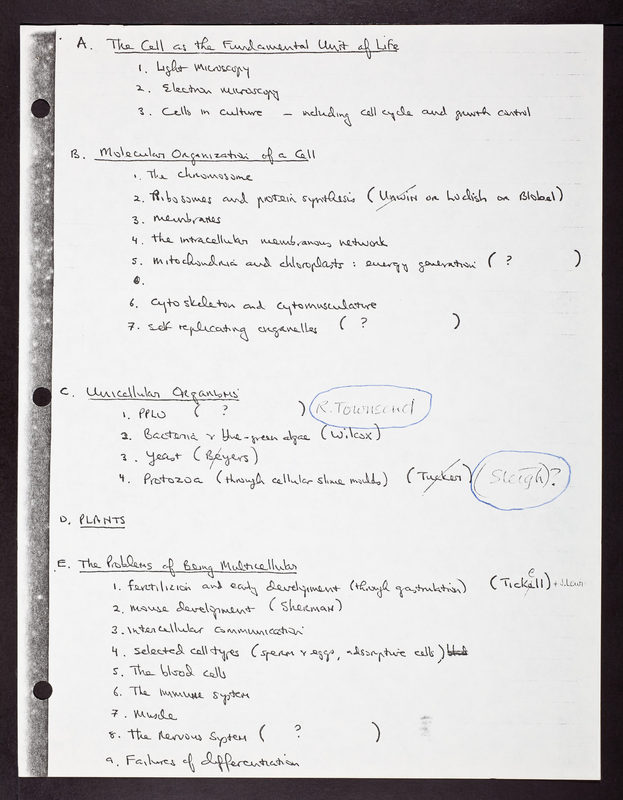 A. The Cell as the Fundamental Unit of Life
1. Light microscopy
2. Electron microscopy
3. Cells in culture — including cell cycle and growth control
B. Molecular Organization of a Cell
1. The chromosome
2. Ribosomes and protein synthesis (Unwin or Lodish or Blobel)
3. membranes
4. the intracellular membranous network
5. mitochondria and chloroplasts : energy generation ( ? )
6.
6. cytoskeleton and cytomusculature
7. self replicating organelles ( ? )
C. Unicellular Organisms
1. PPLO ( ? ) R. Townsend
2. Bacteria & blue-green algae (Wilcox)
3. Yeast (Beyers)
4. Protozoa (through cellular slime moulds) (Tucker) (Sleigh)?
D. PLANTS
E. The Problems of Being Multicellular
1. fertilizion and early development (through gastrulation) (Tickell) +
2. mouse development (Sherman)
3. intercellular communication
4. selected cell types (sperm & eggs, adsorptive cells)
5. The blood cells
6. The immune system
7. Muscle
8. The nervous system ( ? )
9. Failures of differentiation